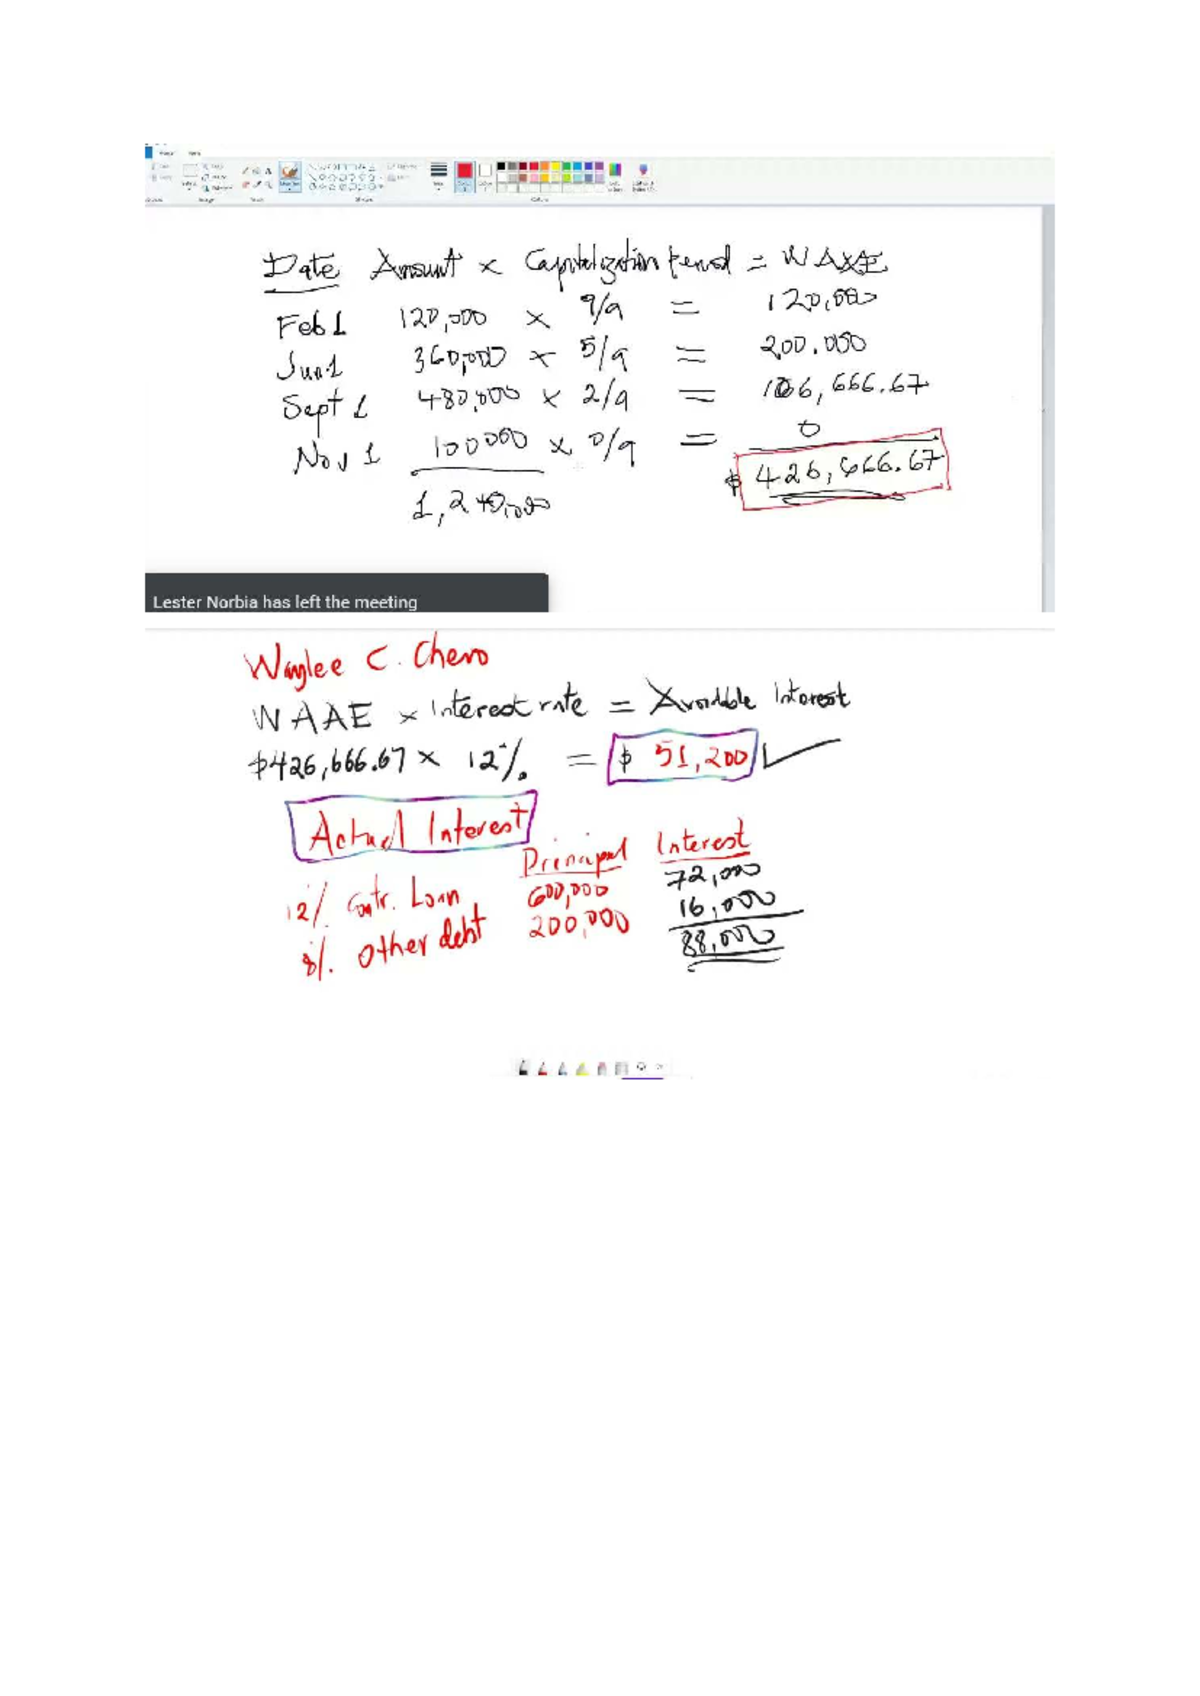 Date Amount × Capitalization Period = WAAE
Feb 1 120,000 × 9/9 = 120,000
Jun 1 360,000 × 5/9 = 200.000
Sept 1 480,000 × 2/9 = 106,666.67
Nov 1 100000 × 0/9 = 0
1,240,000 $ 426,666.67
Lester Norbia has left the meeting
Waylee C. Chero
WAAE × Interest rate = Avoidable Interest
$426,666.67 × 12% = $ 51,200
Actual Interest
Principal Interest
12% Contr. Loan 600,000 72,000
8% Other debt 200,000 16,000
88,000